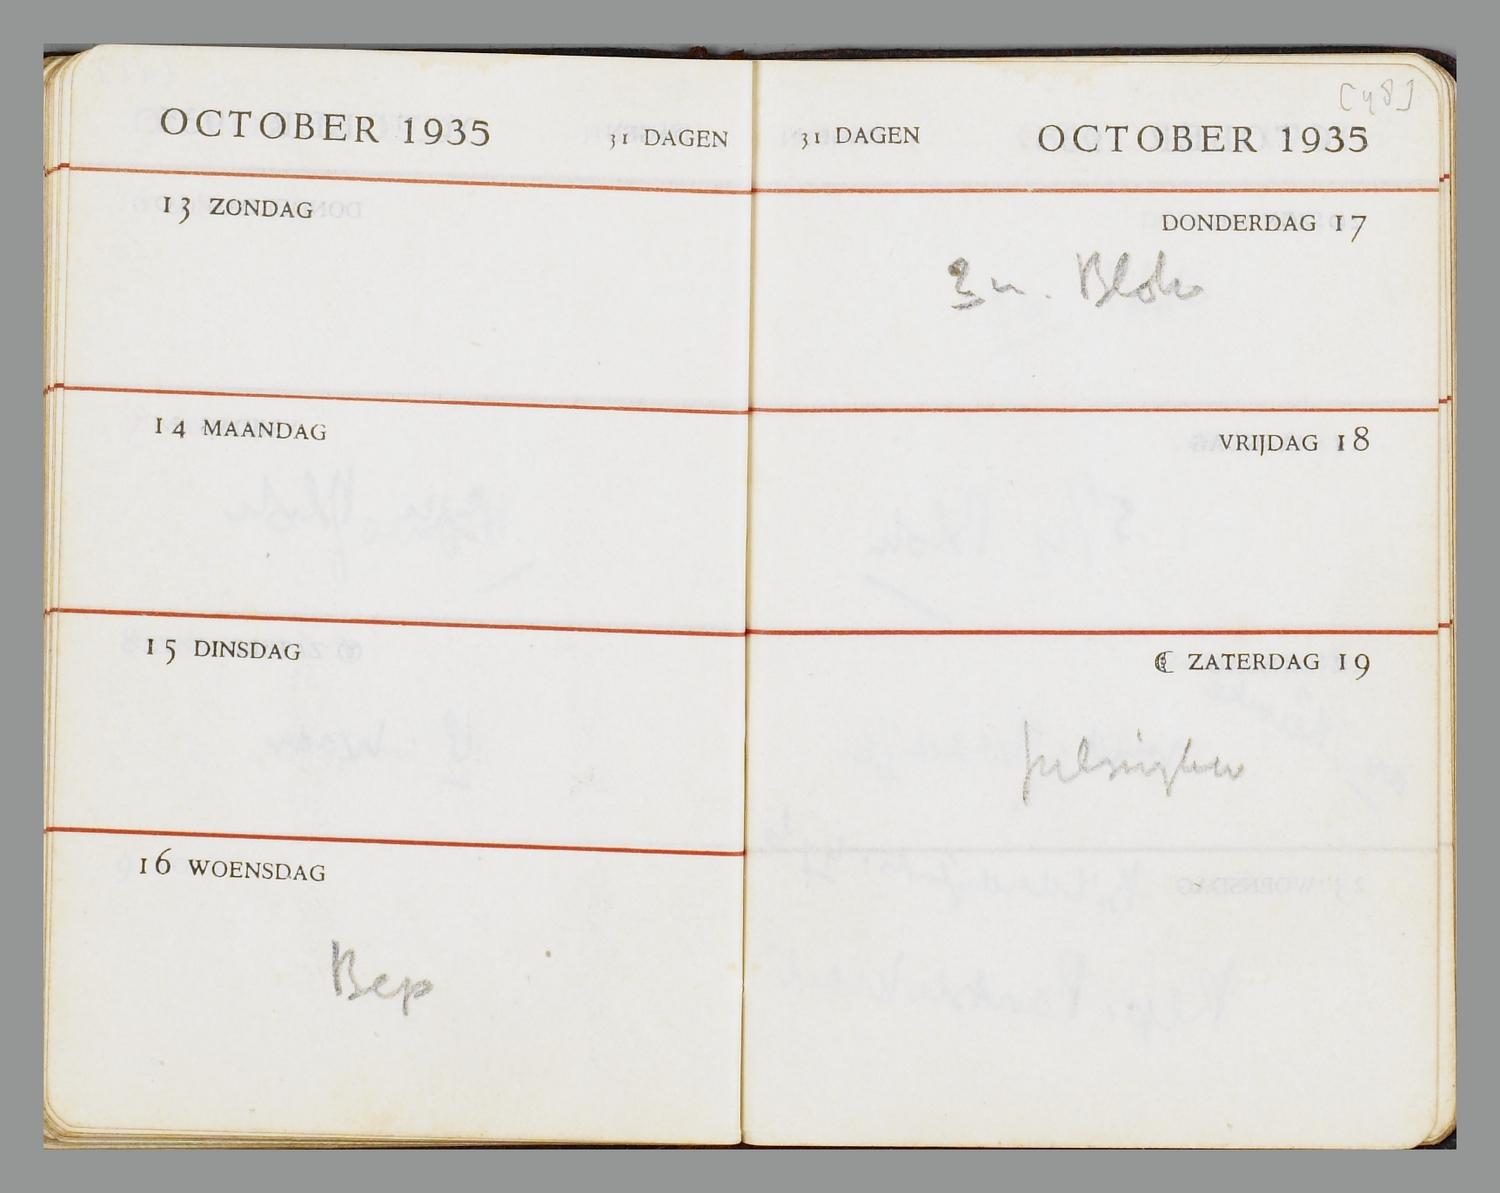 OCTOBER 1935 31 DAGEN
13 ZONDAG
14 MAANDAG
15 DINSDAG
16 WOENSDAG
Bep
[48]
31 DAGEN OCTOBER 1935
DONDERDAG 17
3 u. Blok
VRIJDAG 18
ZATERDAG 19